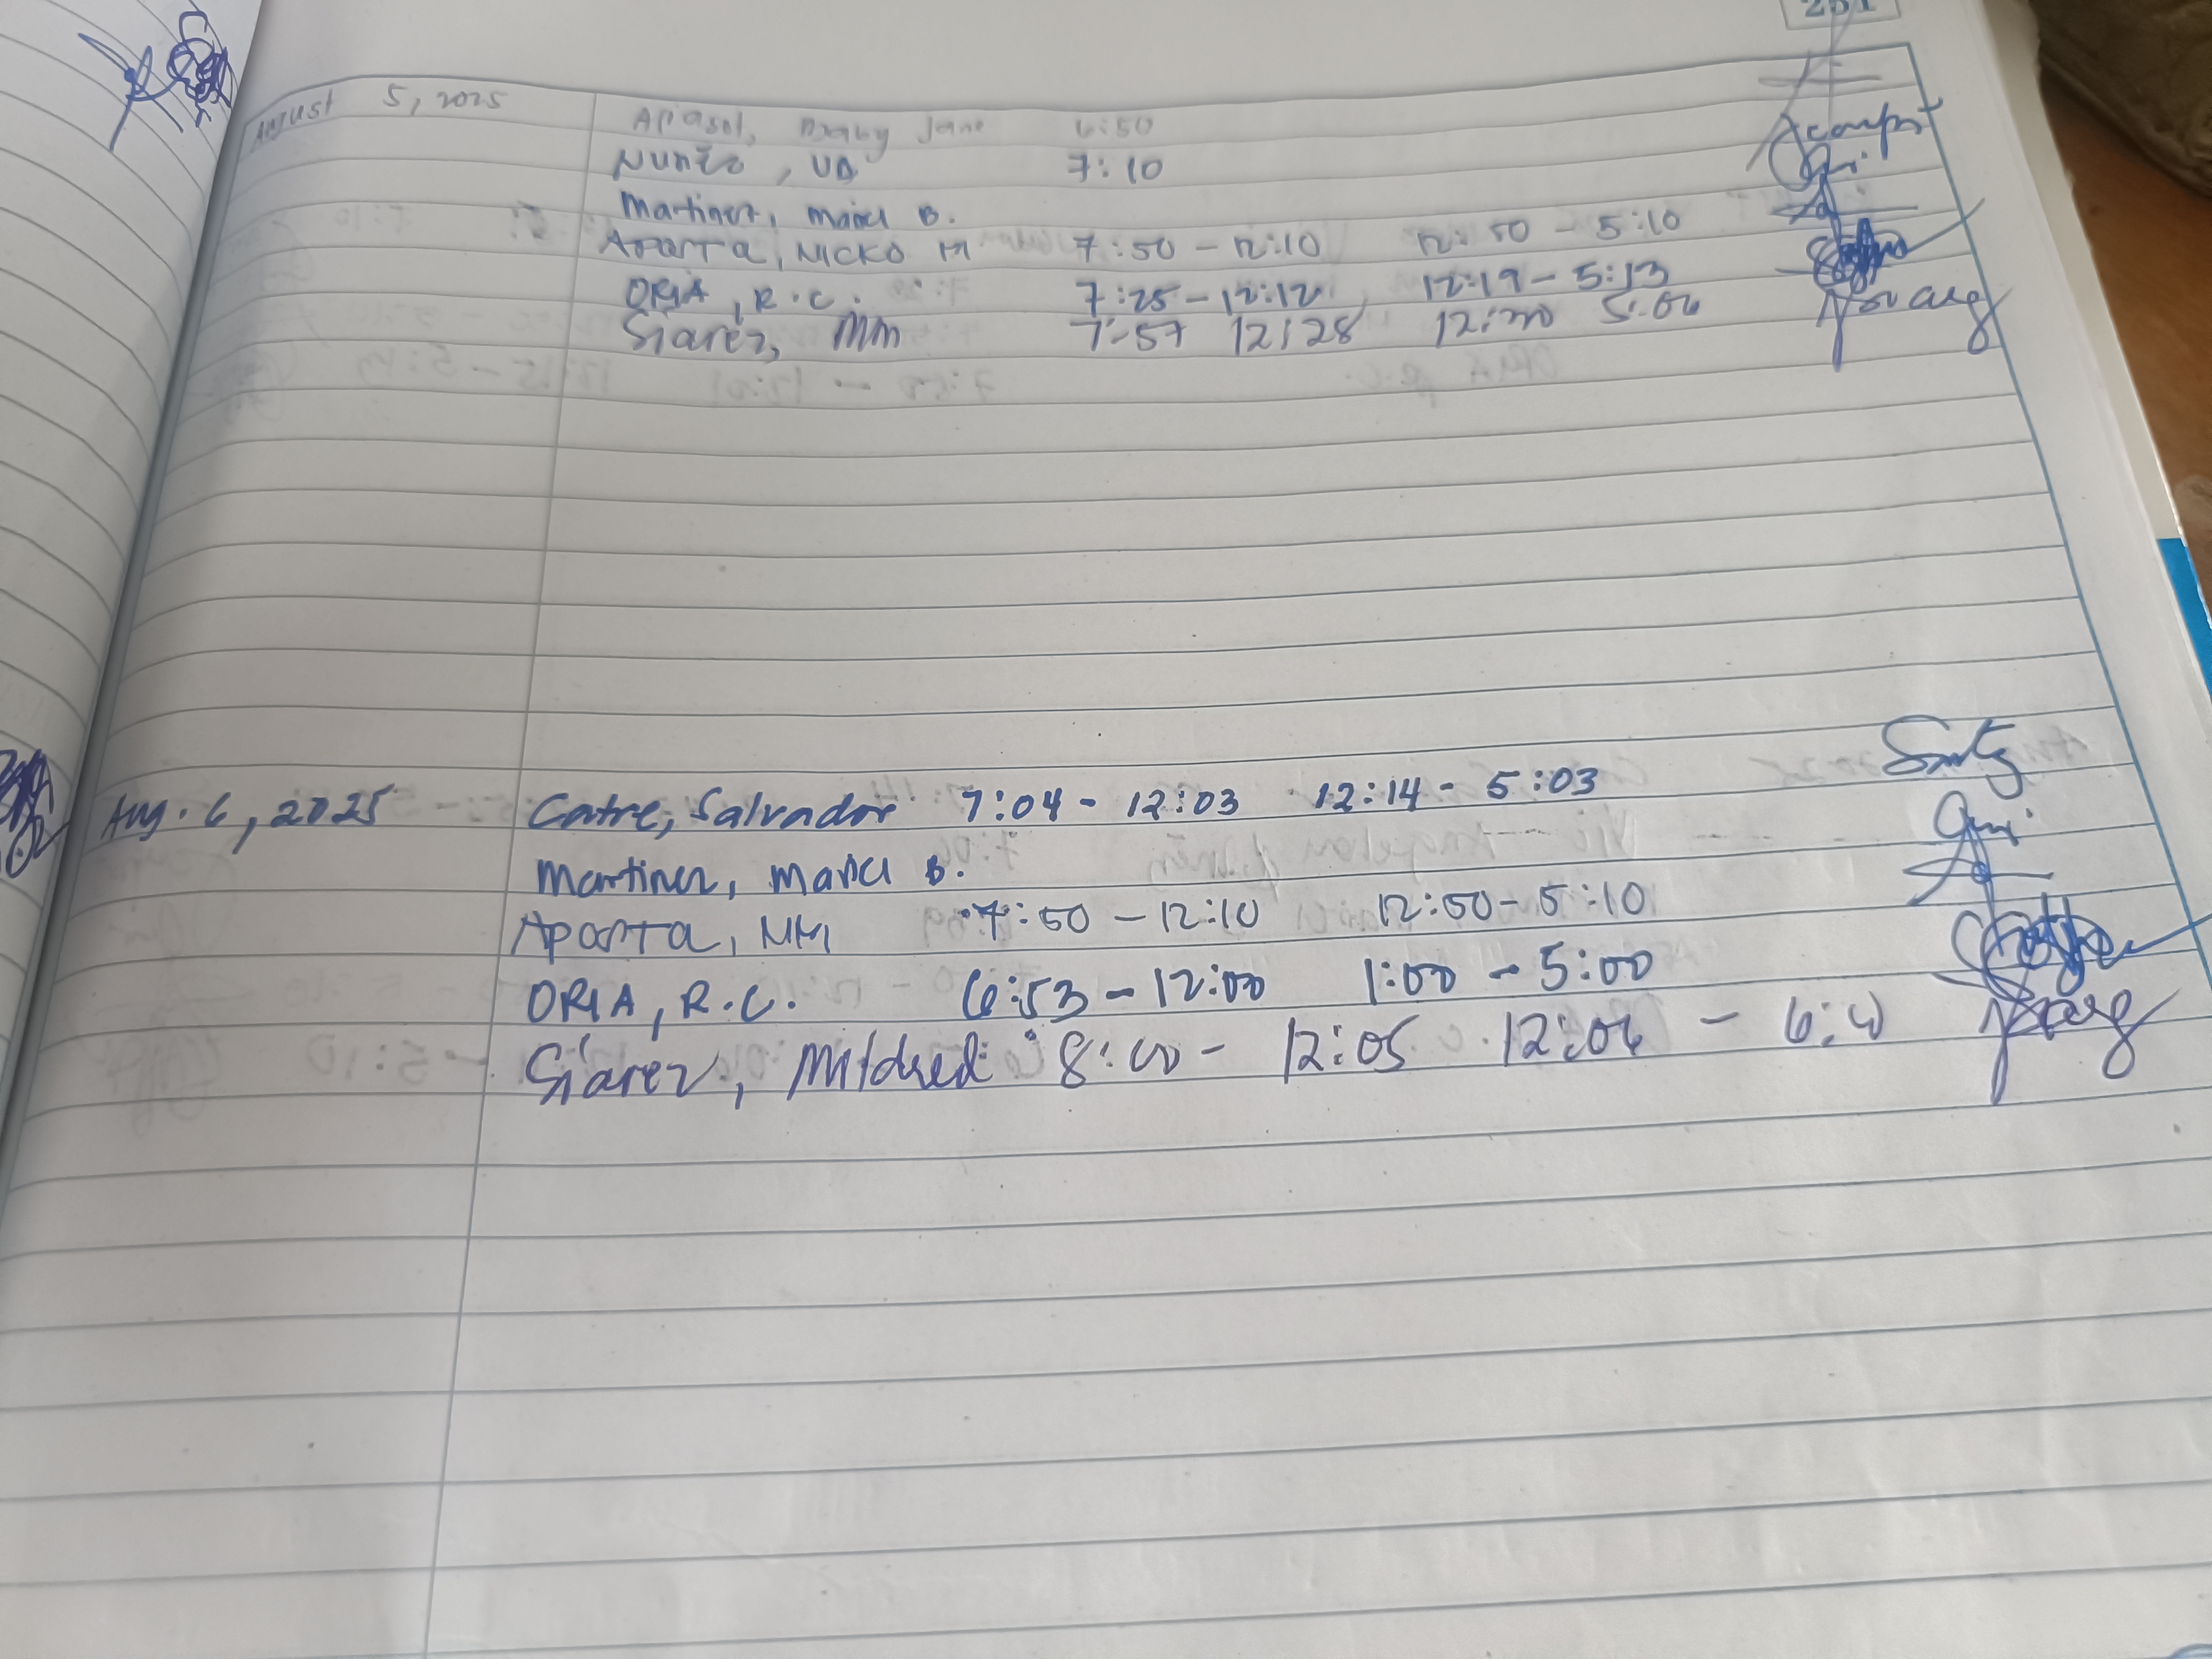 251
August 5, 2025 Apasol, Baby Jane 6:50
Nuñez, VA 7:10
Martinez, Maricl B.
Aparta, NICKO M 7:50 - 12:10 12:50 - 5:10
ORIA, R.C. 7:25 - 12:12 12:19 - 5:13
Siarez, MM 7:57 12:28 12:30 5:06
Aug. 6, 2025 Catre, Salvador 7:04 - 12:03 12:14 - 5:03
Martinez, Maricl B.
Aparta, NM 7:50 - 12:10 12:50 - 5:10
ORIA, R.C. 6:53 - 12:00 1:00 - 5:00
Siarez, Mildred 8:00 - 12:05 12:06 -